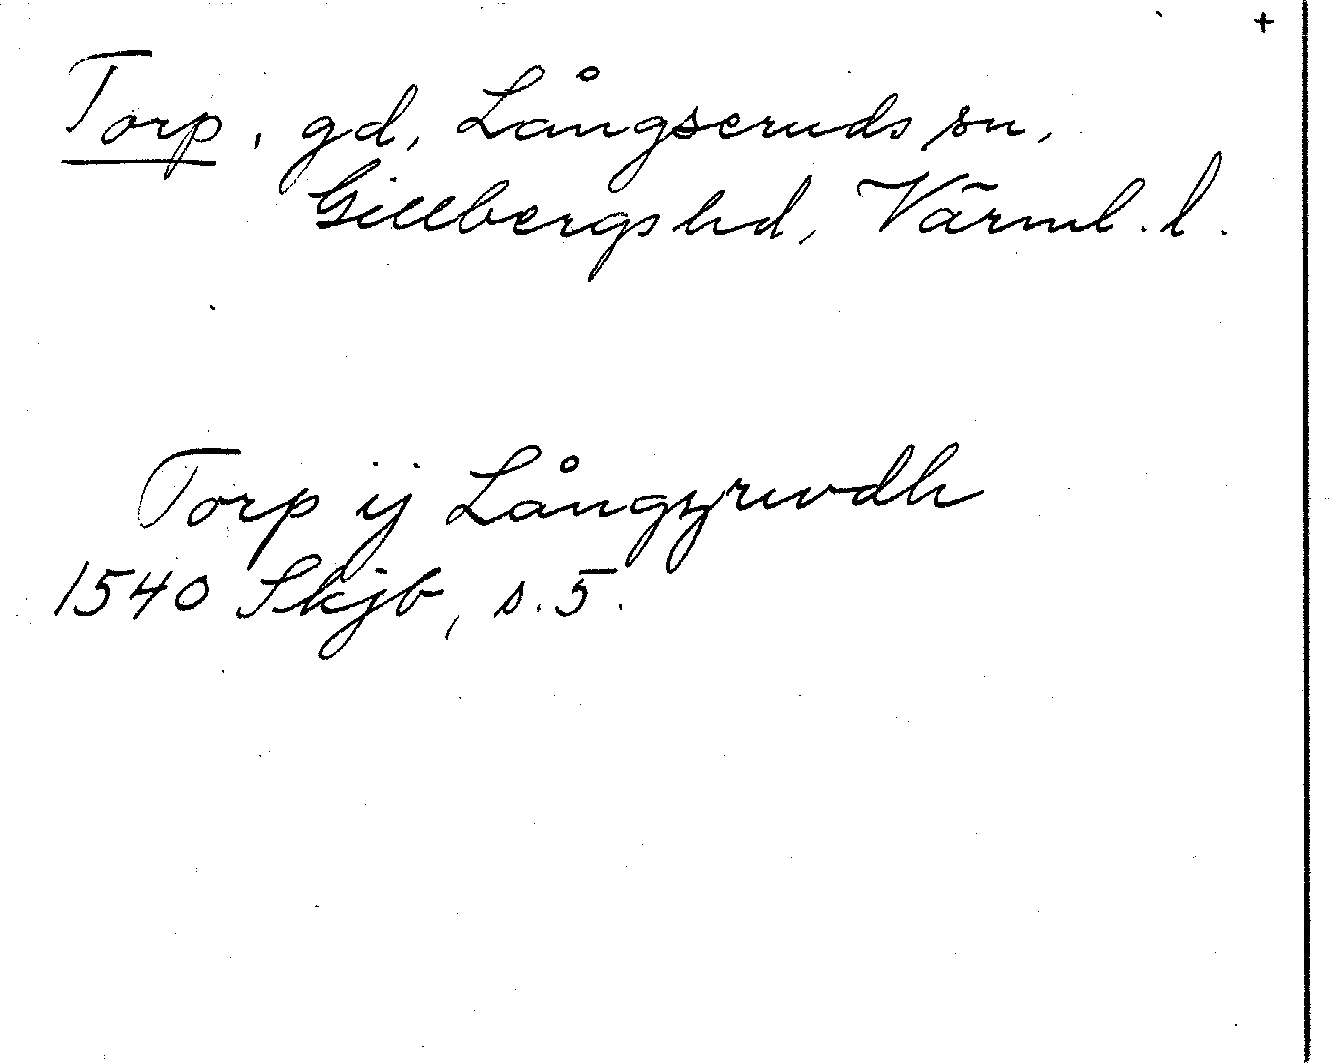 +
Torp, gd, Långseruds sn,
Gillbergs hd, Värml. l.
Torp ij Långzrwdh
1540 Skjb, s. 5.